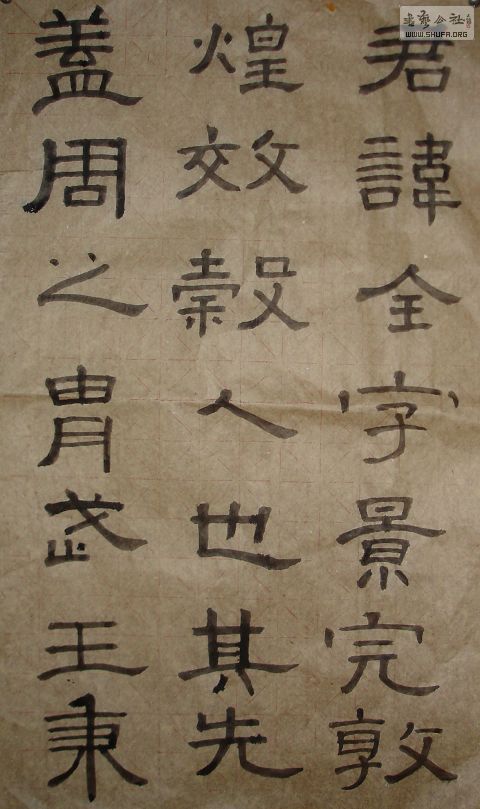 君諱全字景完敦
煌效穀人也其先
蓋周之胄武王秉
书艺公社
WWW.SHUFA.ORG